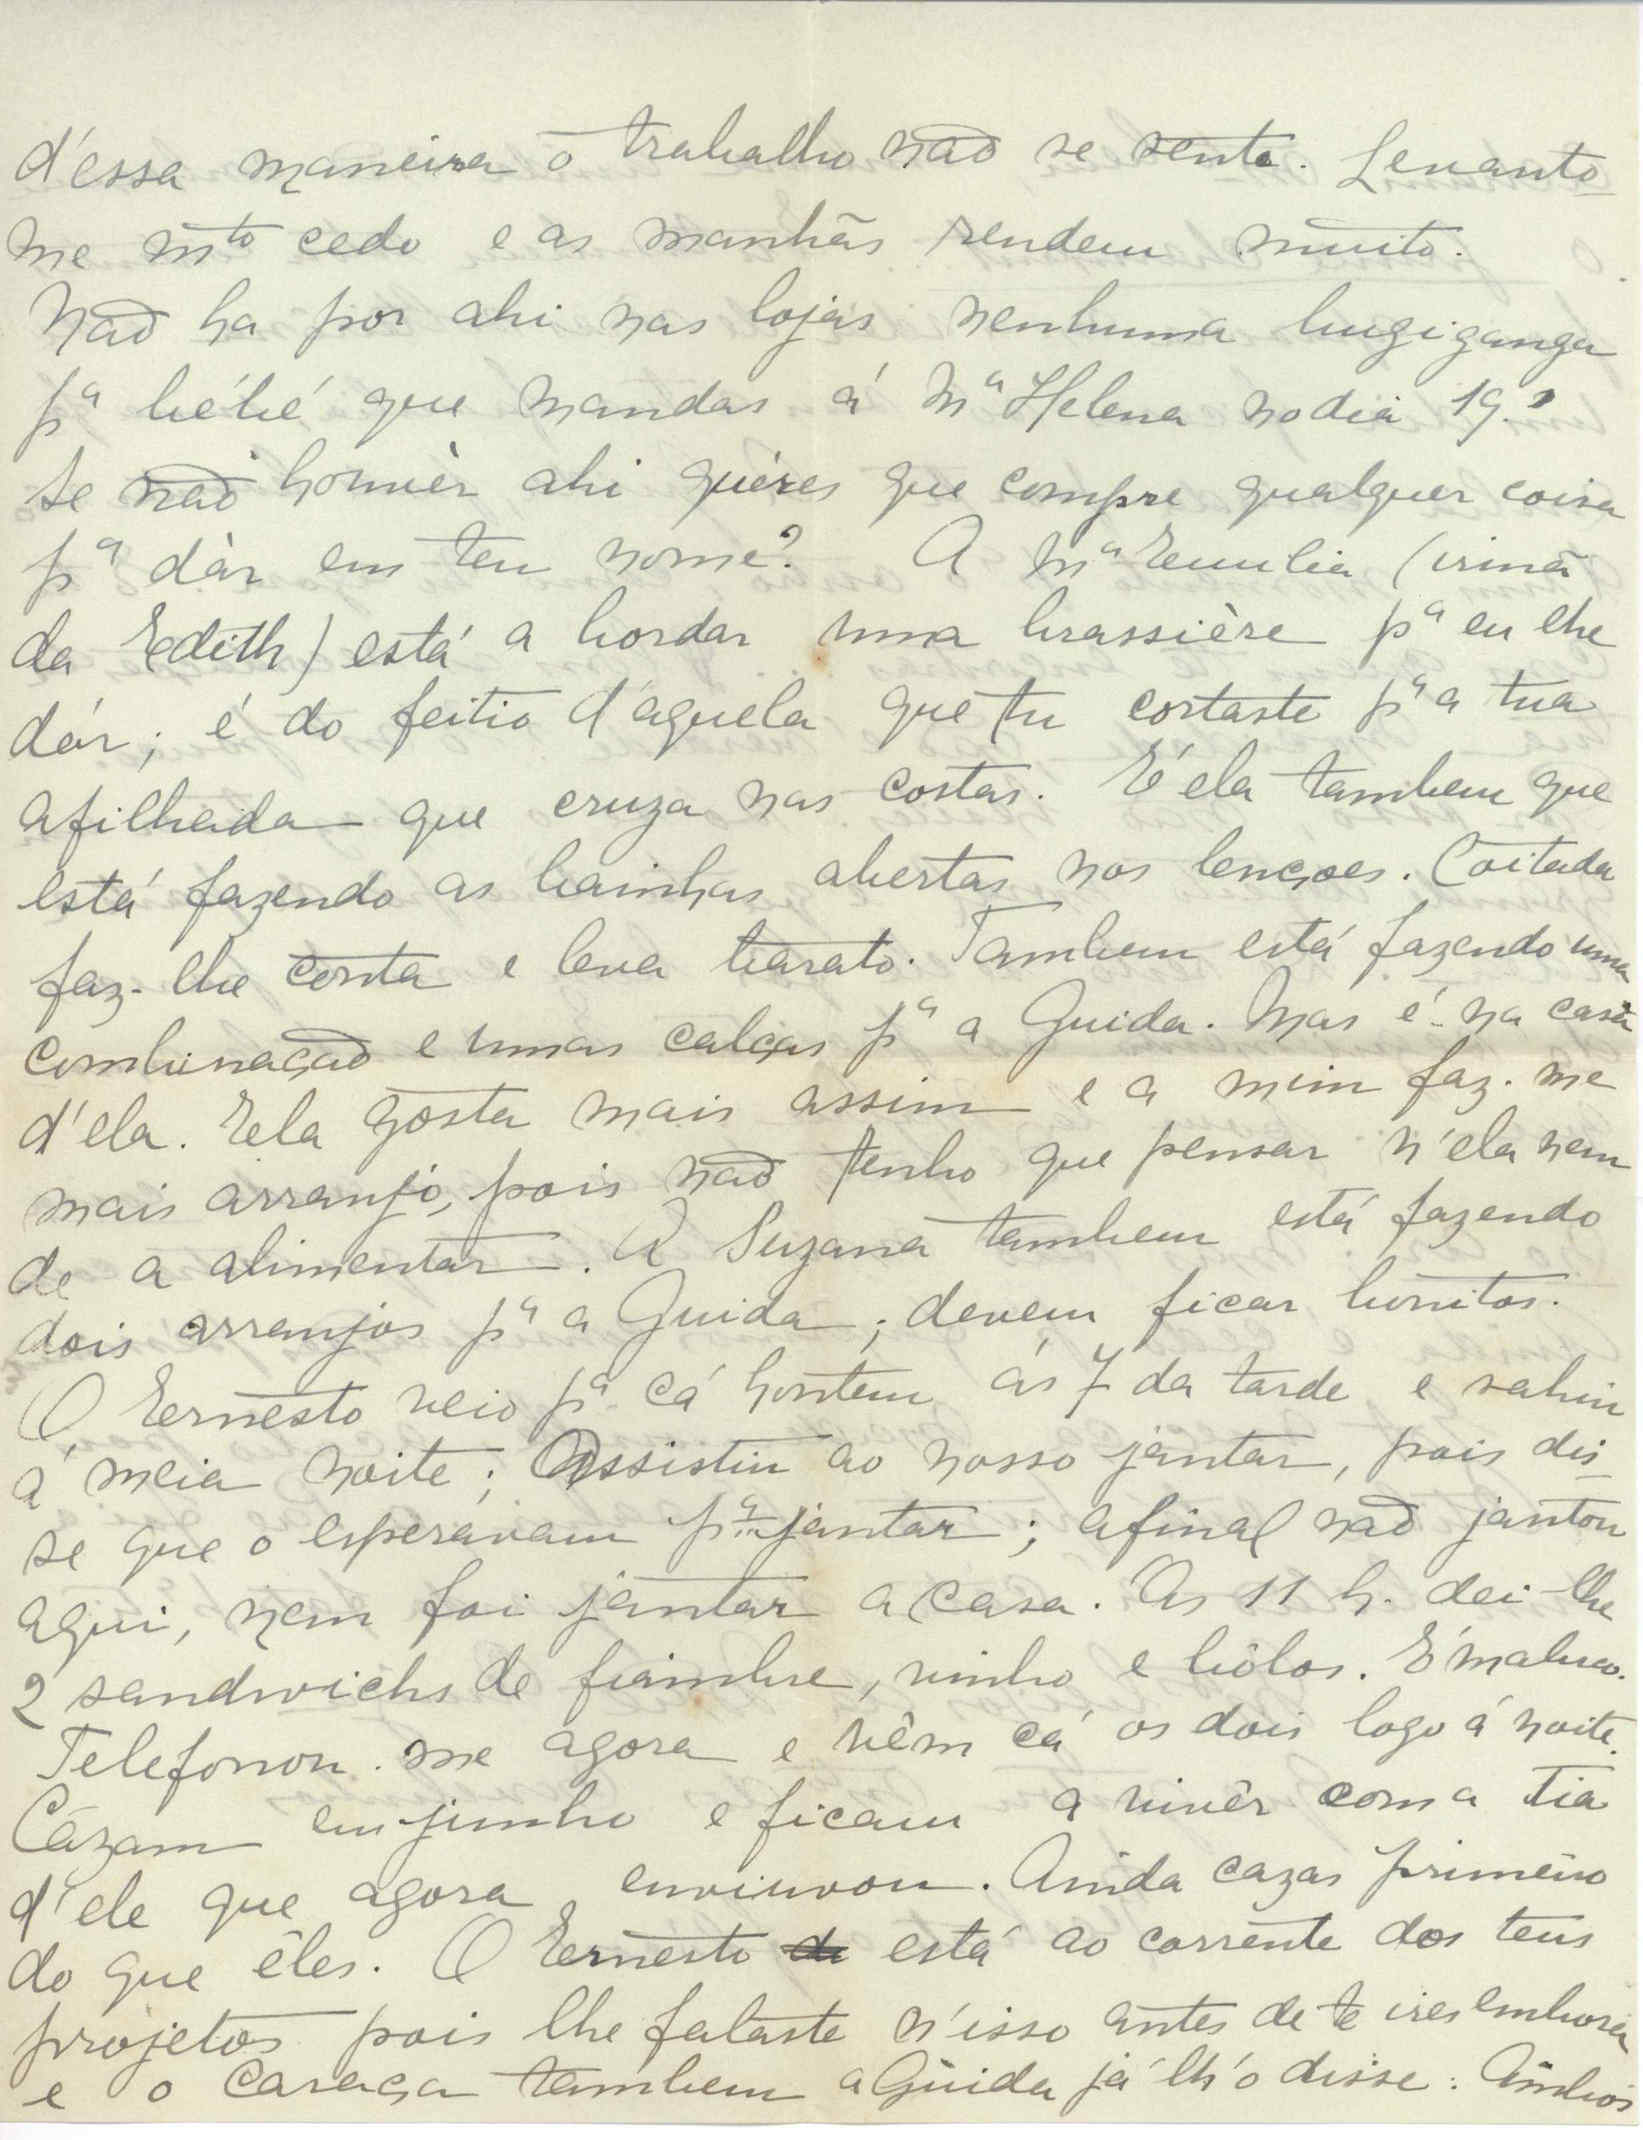 d'essa maneira o trabalho não se sente. Levanto
me mto cedo e as manhãs rendem muito.
Não ha por ahi nas lojas nenhuma bugiganga
pa bébé que mandas á Ma Helena no dia 19?
Se não houvèr ahi quéres que compre qualquer coisa
pa dàr em teu nome? A Ma Emilia (irmã
da Edith) está a bordar uma brassière pa eu lhe
dár; é do feitio d'aquela que tu cortaste pa a tua
afilhada que cruza nas costas. E' ela tambem que
está fazendo as bainhas abertas nos lençoes. Coitada
faz-lhe conta e leva barato. Tambem está fazendo uma
combinação e umas calças pa a Guida. Mas é na casa
d'ela. Ela gosta mais assim e a mim faz-me
mais arranjo, pois não tenho que pensar n'ela nem
de a alimentar. A Suzana tambem está fazendo
dois arranjos pa a Guida; devem ficar bonitos.
O Ernesto veio pa cá hontem ás 7 da tarde e sahiu
á meia noite; Assistiu ao nosso jantar, pois dis-
se que o esperavam pa jantar; afinal não jantou
aqui, nem foi jantar a casa. As 11 h. dei-lhe
2 sandwichs de fiambre, vinho e bôlos. E' maluco.
Telefonou-me agora e vêm cá os dois logo á noite.
Cázam em junho e ficam a vivêr com a tia
d'ele que agora enviuvou. Ainda cazas primeiro
do que êles. O Ernesto de está ao corrente dos teus
projetos pois lhe falaste n'isso antes de te ires embora
e o Caraça tambem a Guida já lh'o disse. Ambos